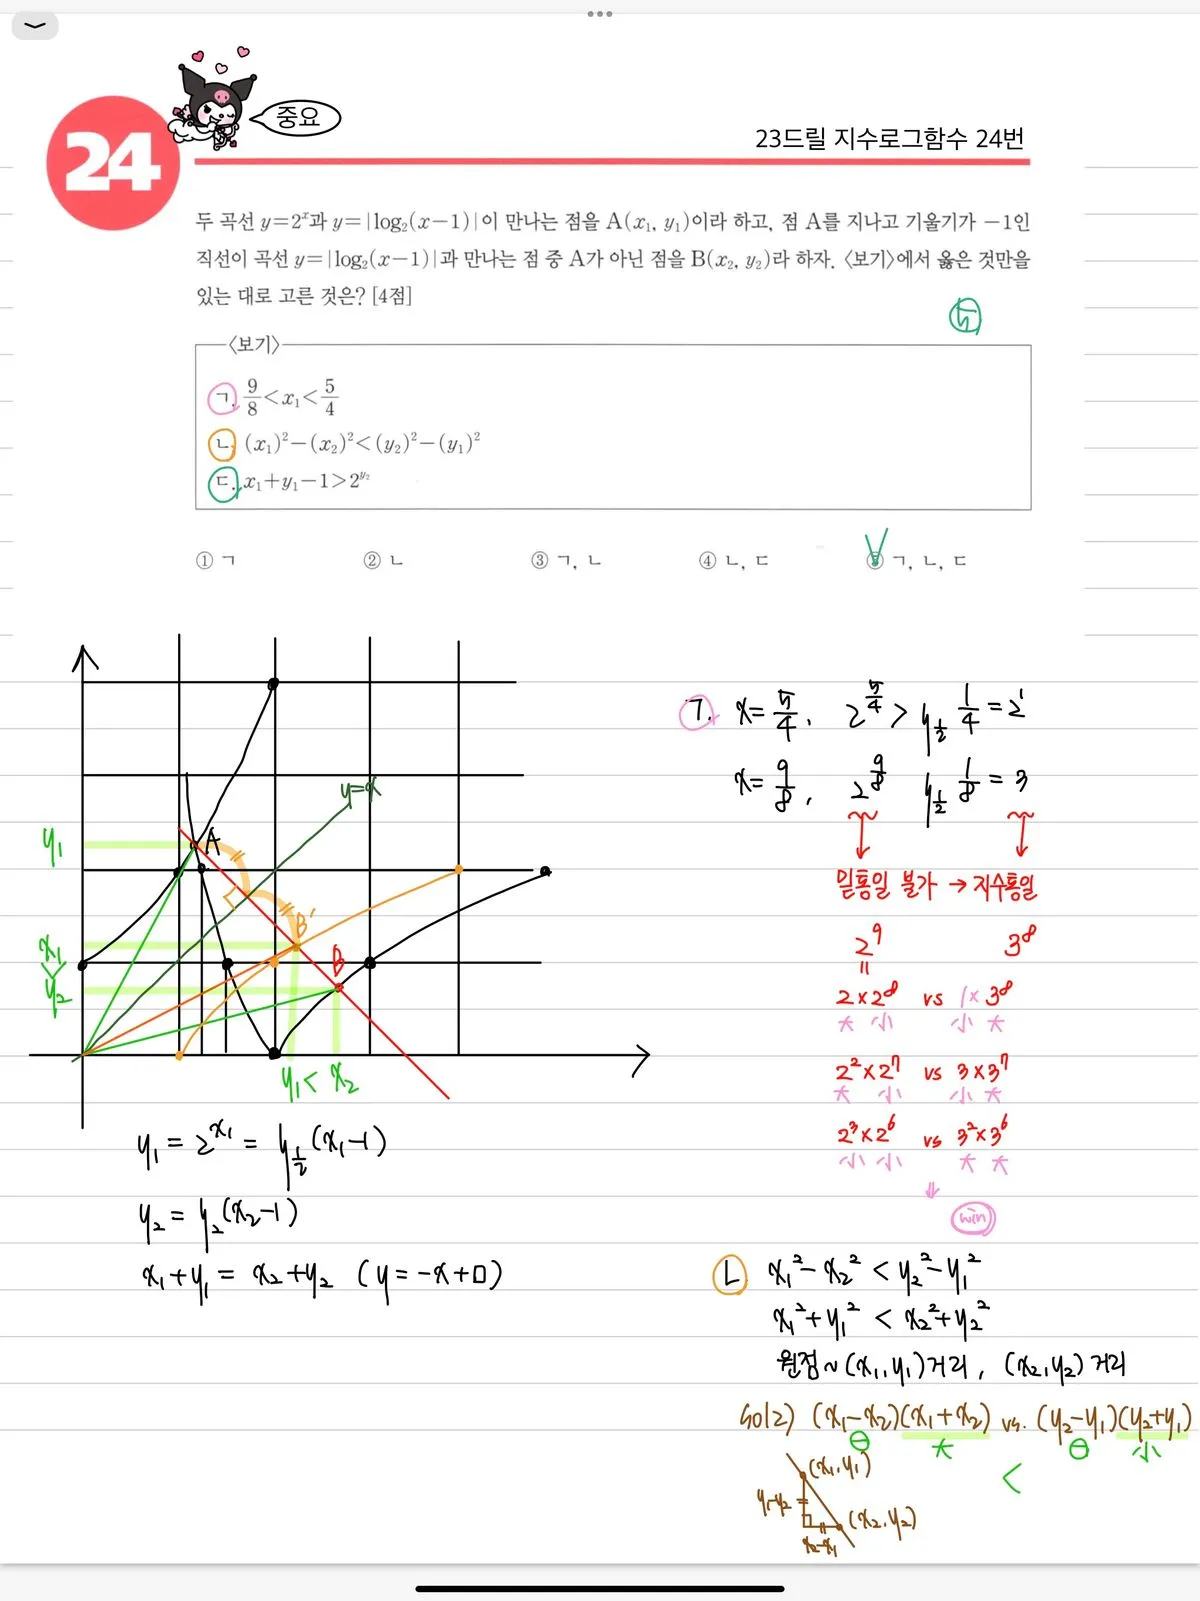 중요
24
23드릴 지수로그함수 24번
두 곡선 y=2ˣ과 y=|log₂(x−1)|이 만나는 점을 A(x₁, y₁)이라 하고, 점 A를 지나고 기울기가 −1인
직선이 곡선 y=|log₂(x−1)|과 만나는 점 중 A가 아닌 점을 B(x₂, y₂)라 하자. 〈보기〉에서 옳은 것만을
있는 대로 고른 것은? [4점]
〈보기〉
ㄱ. 9/8<x₁<5/4
ㄴ. (x₁)²−(x₂)²<(y₂)²−(y₁)²
ㄷ. x₁+y₁−1>2^y₂
① ㄱ ② ㄴ ③ ㄱ, ㄴ ④ ㄴ, ㄷ ⑤ ㄱ, ㄴ, ㄷ
y=x
y₁
A
B'
x₁
B
y₂
y₁< x₂
y₁ = 2^x₁ = log_1/2 (x₁−1)
y₂ = log₂(x₂−1)
x₁+y₁ = x₂+y₂ (y=−x+□)
ㄱ. x=5/4, 2^5/4 > log_1/2 1/4 = 2
x=9/8, 2^9/8 log_1/2 1/8 = 3
밑통일 불가 → 지수통일
2⁹ 3⁸
=
2×2⁸ vs 1×3⁸
大 小 小 大
2²×2⁷ vs 3×3⁷
大 小 小 大
2³×2⁶ vs 3²×3⁶
小 小 大 大
⇓
win
ㄴ x₁²−x₂² < y₂²−y₁²
x₁²+y₁² < x₂²+y₂²
원점~(x₁,y₁)거리, (x₂,y₂) 거리
sol2) (x₁−x₂)(x₁+x₂) vs. (y₂−y₁)(y₂+y₁)
⊖ 大 < ⊖ 小
(x₁,y₁)
y₁−y₂
(x₂,y₂)
x₂−x₁